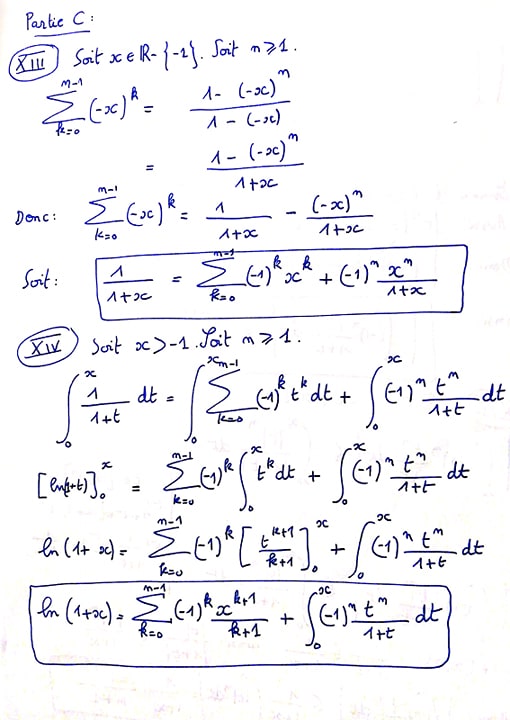 Partie C :
XIII Soit x ∈ ℝ - {-1}. Soit n ⩾ 1.
∑_{k=0}^{n-1} (-x)^k = (1 - (-x)^n) / (1 - (-x))
= (1 - (-x)^n) / (1+x)
Donc : ∑_{k=0}^{n-1} (-x)^k = 1/(1+x) - (-x)^n/(1+x)
Soit : 1/(1+x) = ∑_{k=0}^{n-1} (-1)^k x^k + (-1)^n x^n/(1+x)
XIV Soit x > -1. Soit n ⩾ 1.
∫_0^x 1/(1+t) dt = ∫_0^x ∑_{k=0}^{n-1} (-1)^k t^k dt + ∫_0^x (-1)^n t^n/(1+t) dt
[ln(1+t)]_0^x = ∑_{k=0}^{n-1} (-1)^k ∫_0^x t^k dt + ∫_0^x (-1)^n t^n/(1+t) dt
ln(1+x) = ∑_{k=0}^{n-1} (-1)^k [t^{k+1}/(k+1)]_0^x + ∫_0^x (-1)^n t^n/(1+t) dt
ln(1+x) = ∑_{k=0}^{n-1} (-1)^k x^{k+1}/(k+1) + ∫_0^x (-1)^n t^n/(1+t) dt